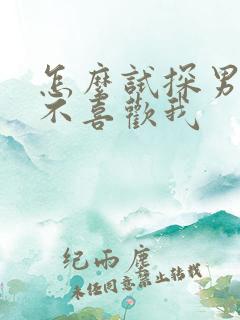 怎麼試探男
不喜歡我
紀雨塵
未经同意禁止转载